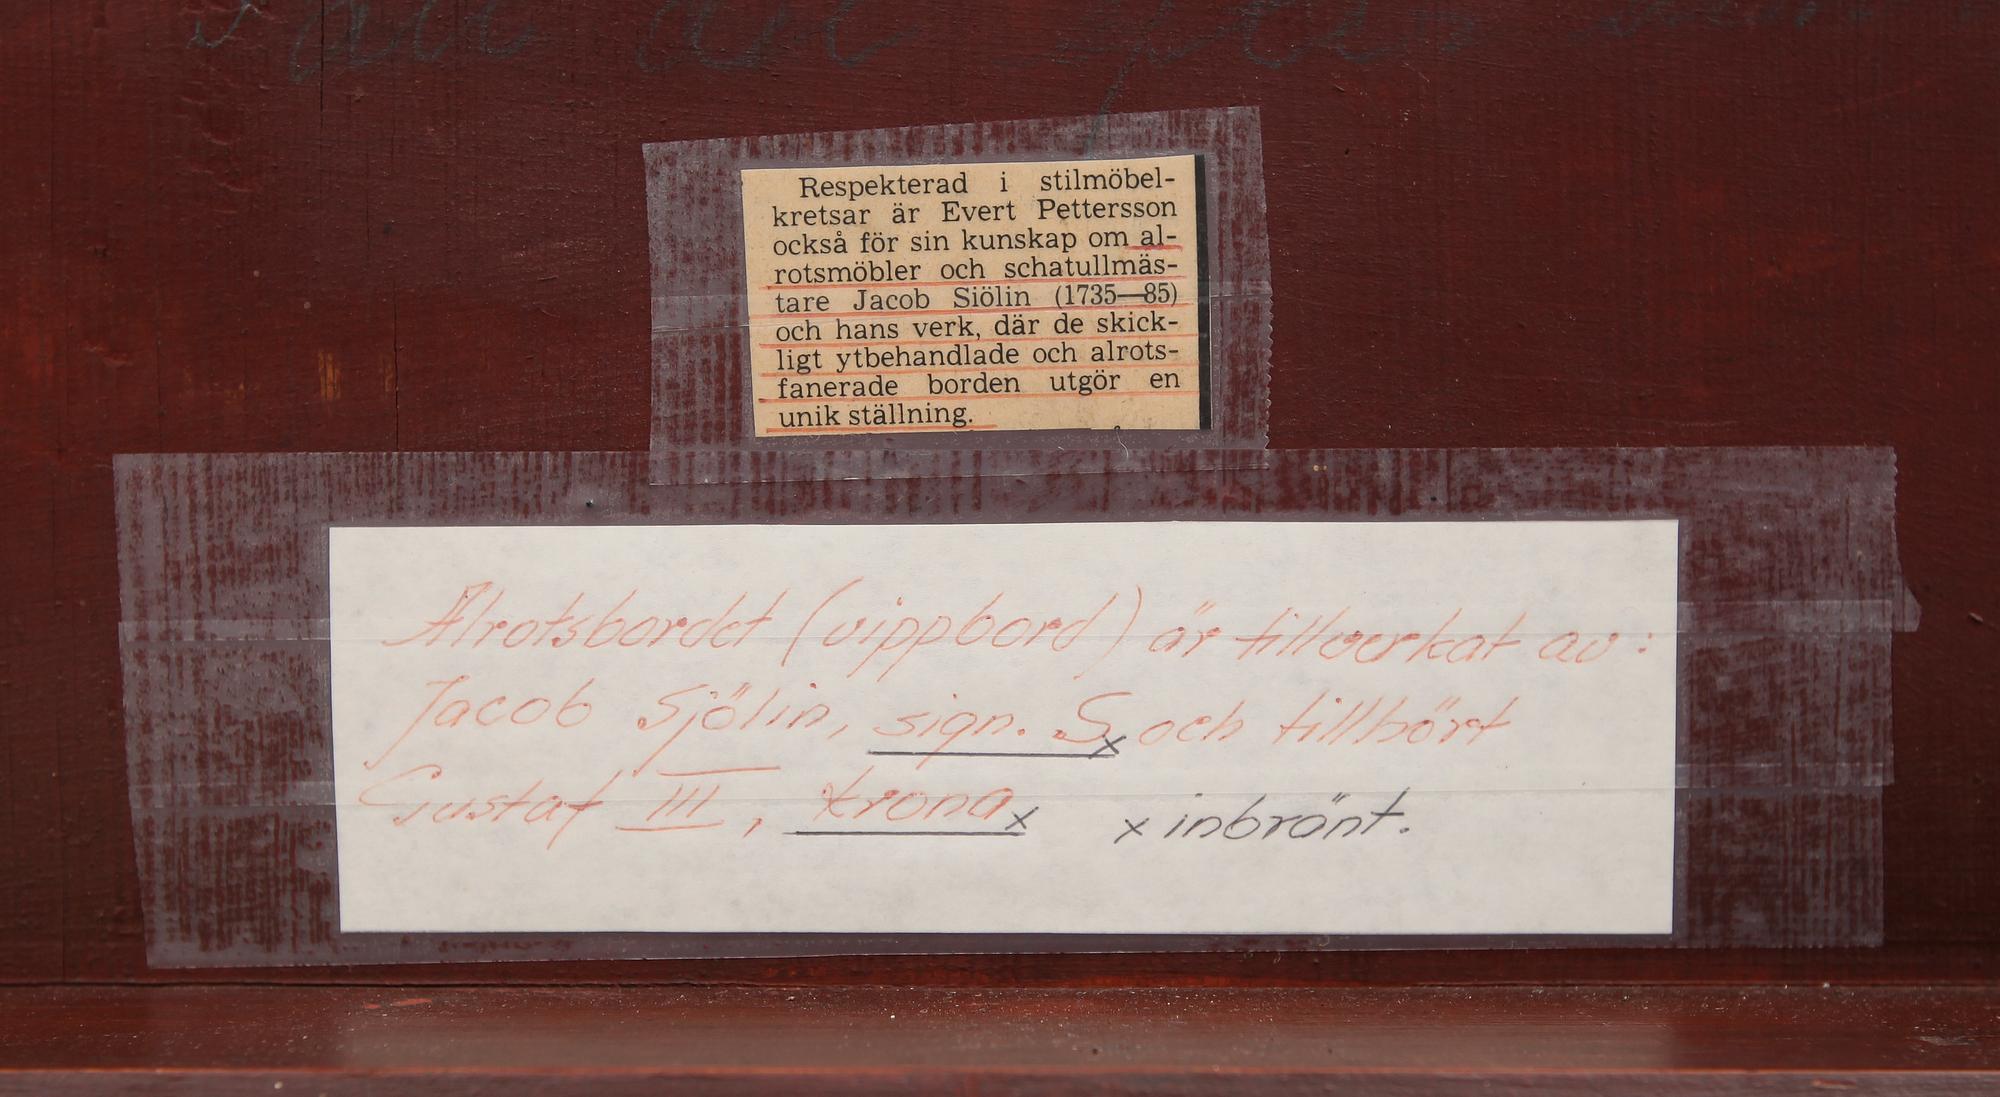 Respekterad i stilmöbel-
kretsar är Evert Pettersson
också för sin kunskap om al-
rotsmöbler och schatullmäs-
tare Jacob Siölin (1735—85)
och hans verk, där de skick-
ligt ytbehandlade och alrots-
fanerade borden utgör en
unik ställning.
Alrotsbordet (vippbord) är tillverkat av:
Jacob Sjölin, sign. Sx och tillhört
Gustaf III, kronax x inbränt.